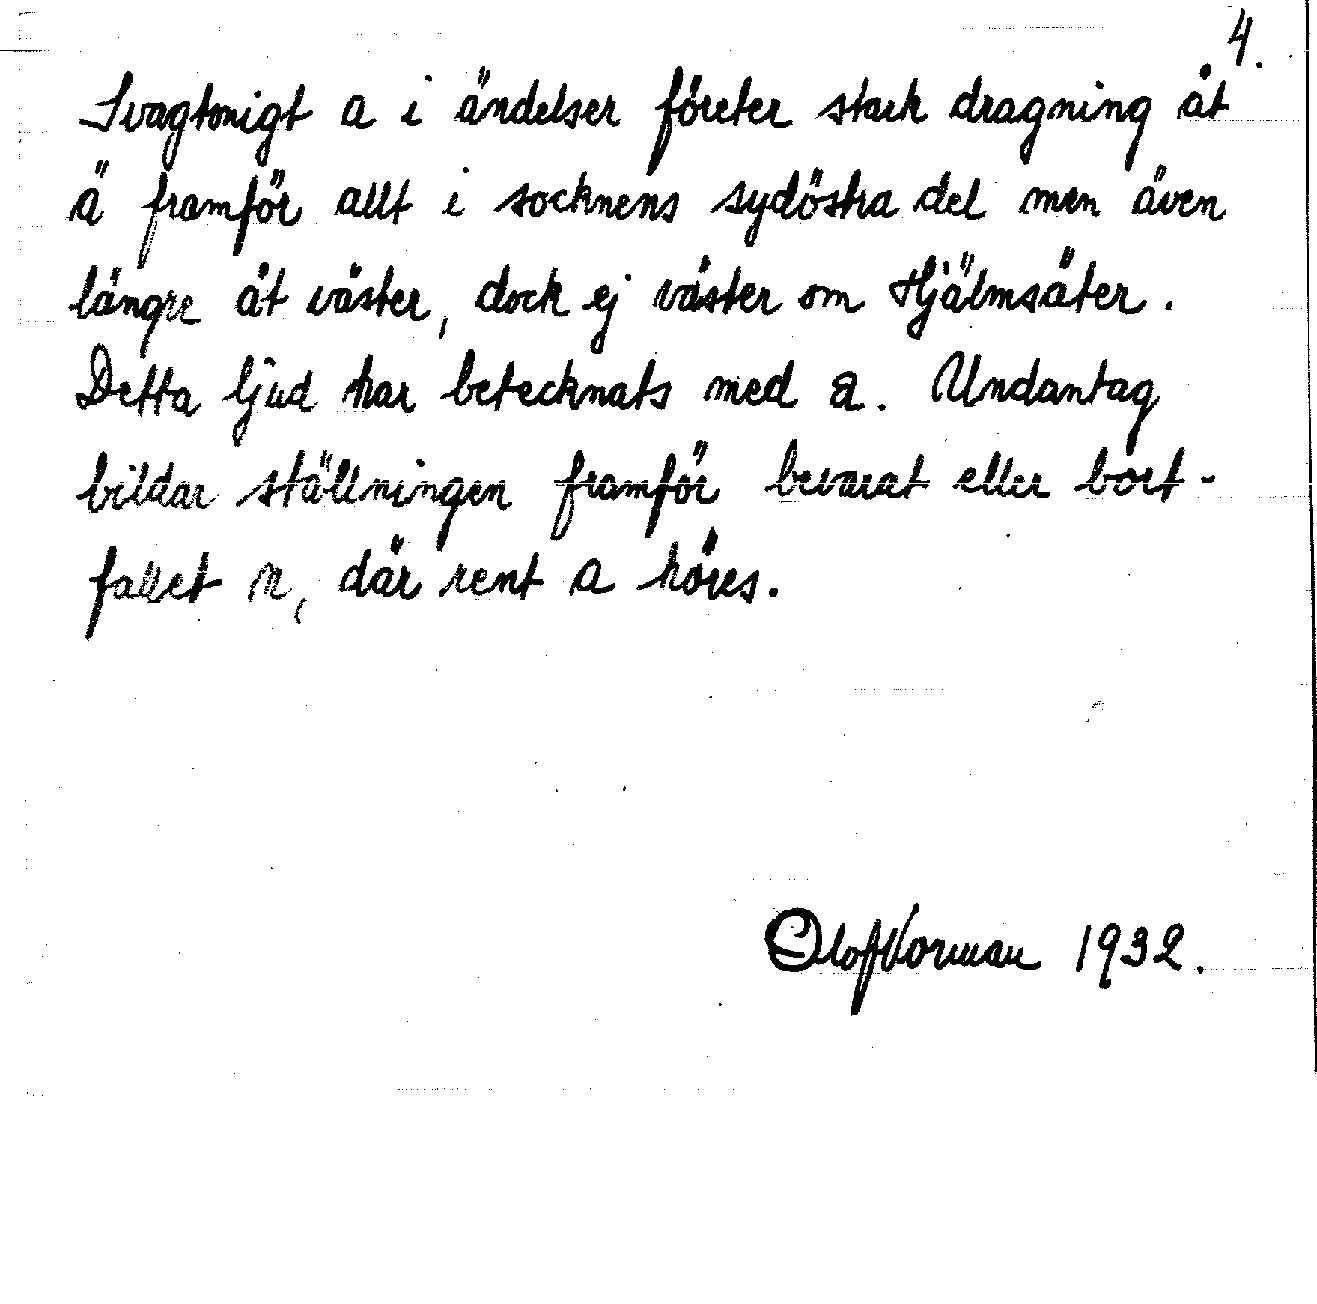 4.
Svagtonigt a i ändelser företer stark dragning åt
ä framför allt i socknens sydöstra del men även
längre åt väster, dock ej väster om Hjälmsäter.
Detta ljud har betecknats med a. Undantag
bildar ställningen framför bevarat eller bort-
fallet n, där rent a höres.
Olof Norman 1932.